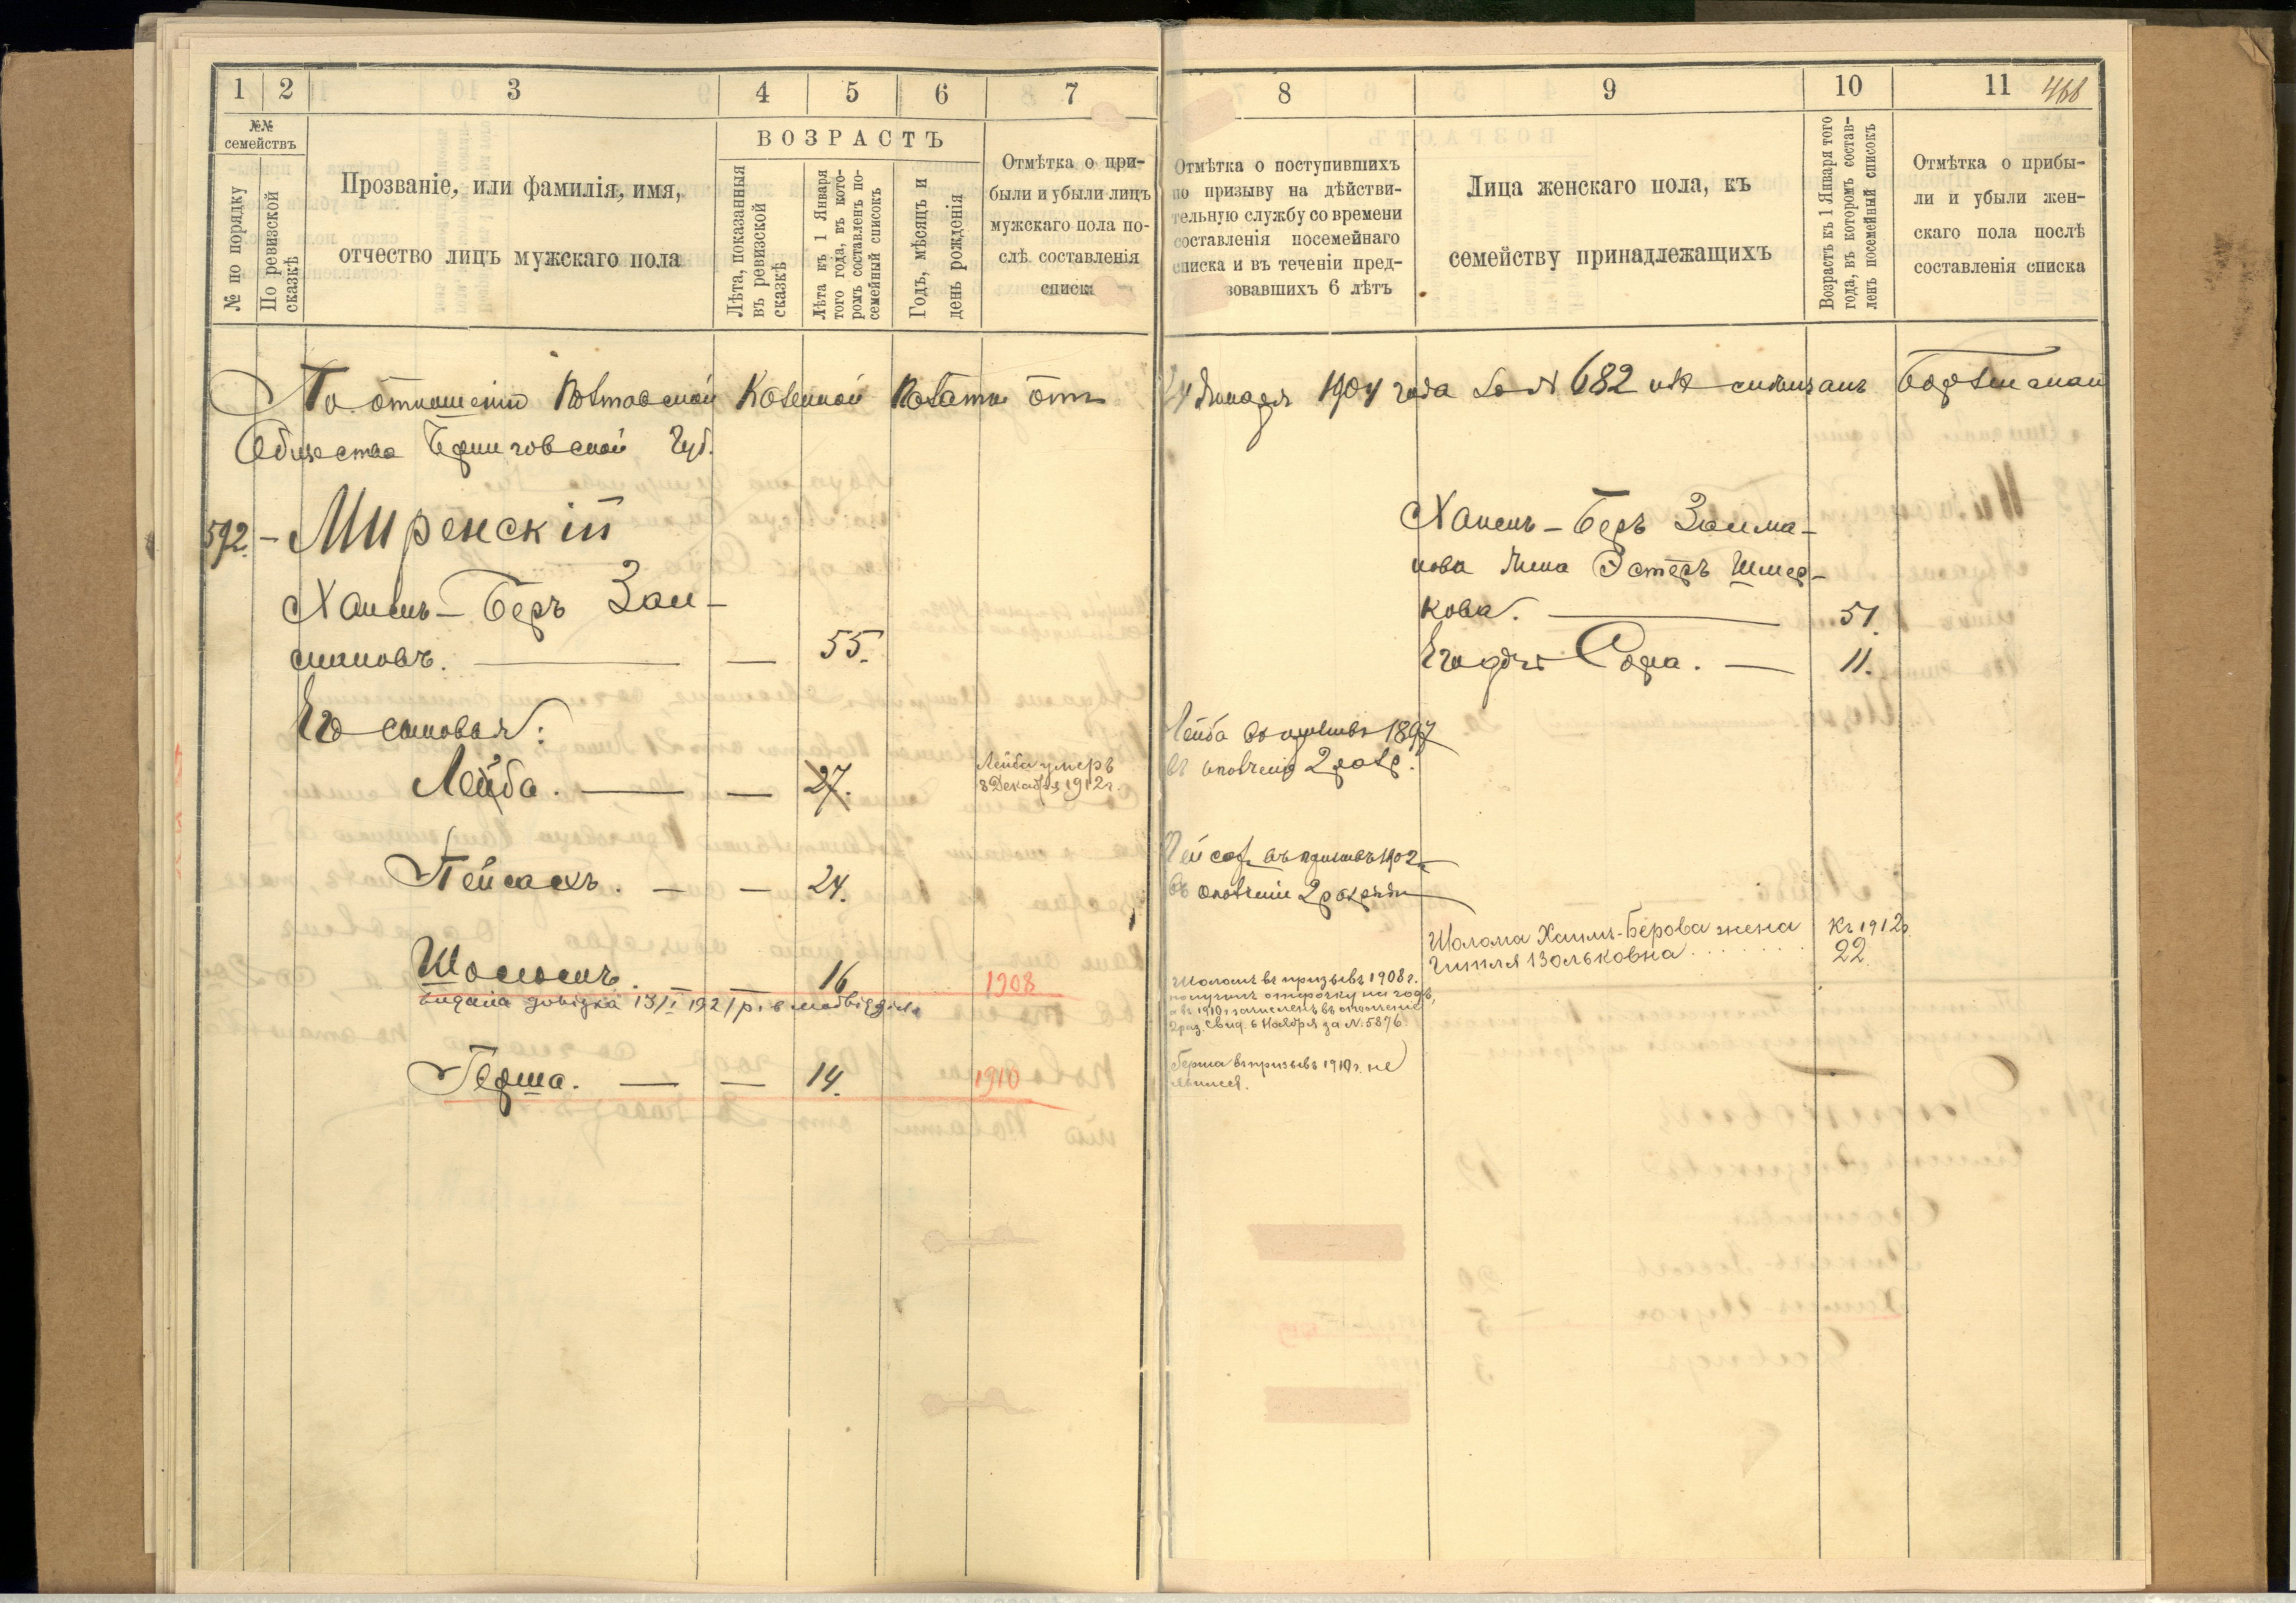 1 2 3 4 5 6 7
№№ семействъ
№ по порядку
По ревизской сказкѣ
Прозваніе, или фамилія, имя,
отчество лицъ мужскаго пола
ВОЗРАСТЪ
Лѣта, показанныя
въ ревизской
сказкѣ
Лѣта къ 1 Января
того года, въ кото-
ромъ составленъ по-
семейный списокъ
Годъ, мѣсяцъ и
день рожденія
Отмѣтка о при-
были и убыли лицъ
мужскаго пола по-
слѣ составленія
списка
По отношенію Полтавской Казенной Палаты отъ
Общества Черниговской Губ.
592. – Миренскій
Хаимъ-Беръ Зал-
мановъ. — — 55.
Его сыновья:
Лейба. — — 27.
Лейба умеръ
8 Декабря 1912 г.
Пейсахъ. — — 24.
Шоломъ. 16 1908
видана довідка 13/I 1921 р.
Герша. — — 14. 1910
8 9 10 11
466
Отмѣтка о поступившихъ
по призыву на дѣйстви-
тельную службу со времени
составленія посемейнаго
списка и въ теченіи пред-
зовавшихъ 6 лѣтъ
Лица женскаго пола, къ
семейству принадлежащихъ
Возрастъ къ 1 Января того
года, въ которомъ состав-
ленъ посемейный списокъ
Отмѣтка о прибы-
ли и убыли жен-
скаго пола послѣ
составленія списка
24 Января 1904 года за № 682 изъ мѣщанъ
Хаимъ-Беръ Залма-
нова жена Эстеръ Шмер-
кова. — 51.
Его дочь Сора. — 11.
Лейба въ призывѣ 1897
въ ополченіе 2 разр.
Пейсах въ призывѣ 1902 г.
въ ополченіи 2 разряда
Шолома Хаимъ-Берова жена Къ 1912 г.
Гитля Вольковна . . . . . . . 22.
Шоломъ въ призывѣ 1908 г.
получилъ отсрочку на годъ,
а въ 1910 г. зачисленъ въ ополченіе
2 раз. Свид. 6 Ноября за № 5876.
Герша въ призывѣ 1910 г. не
явился.